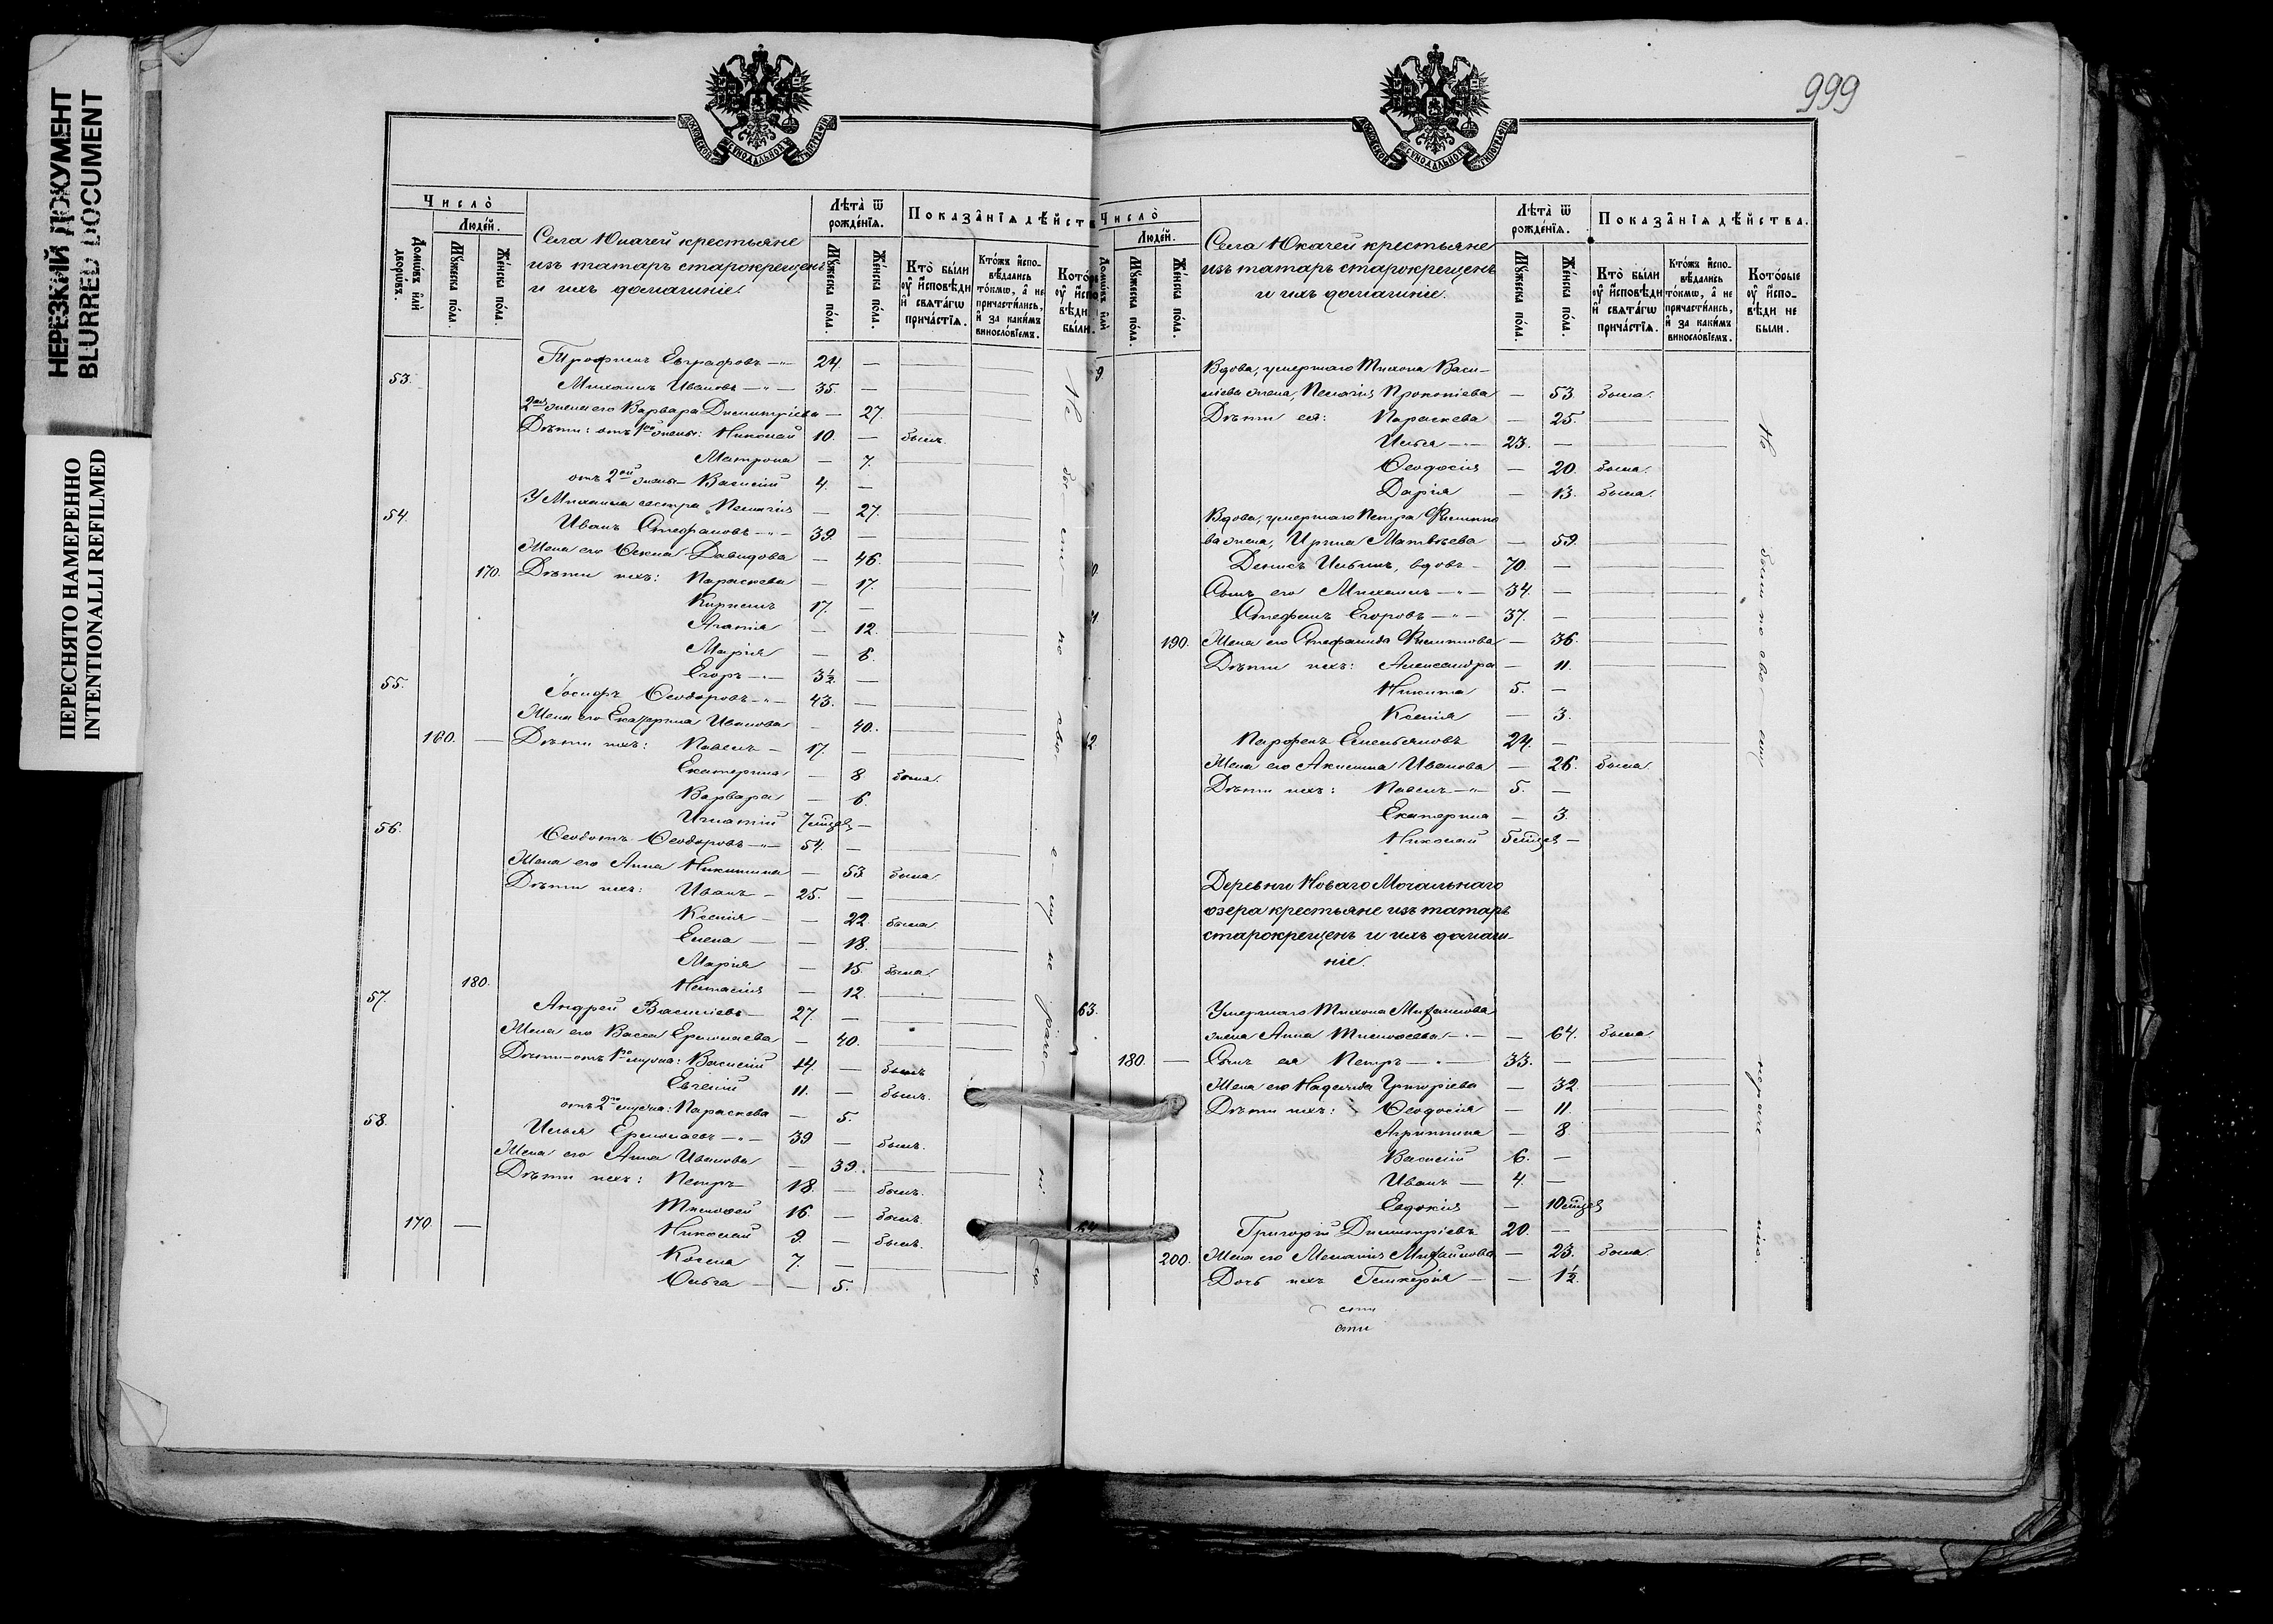 НЕРЕЗКИЙ ДОКУМЕНТ
BLURRED DOCUMENT
ПЕРЕСНЯТО НАМЕРЕННО
INTENTIONALLI REFILMED
Число̀
Люде́й.
Домѡ́въ и҆лѝ дворѡ́въ.
Мꙋ́жеска по́ла.
Же́нска по́ла.
Села Юкачей крестьяне
изъ татаръ старокрещенъ
и ихъ домашніе.
Лѣта̀ ѿ рожде́нїя.
Мꙋ́жеска по́ла.
Же́нска по́ла.
Показа̂нїѧ дѣ́йств
Кто̀ бы́ли ᲂу҆ и҆сповѣ́ди и҆ свѧта́гѡ прича́стїѧ.
Кто́жъ и҆спо-вѣ́дались то́кмѡ, а҆ не причасти́лись, и҆ за каки́мъ винослові́емъ.
Трофимъ Евграфовъ —„— 24. —
53. Михаилъ Ивановъ —„— 35. —
2ая жена его Варвара Димитріева — 27.
Дѣти: отъ 1ой жены: Николай 10. — былъ.
Матрона — 7.
отъ 2ой жены — Василій 4. —
У Михаила сестра Пелагія — 27.
54. Иванъ Стефановъ —„— 39. —
Жена его Фекла Давидова — 46.
170. Дѣти ихъ: Параскева — 17.
Кириллъ 17. —
Агапія — 12.
Марія — 6.
Егоръ —„— 3½. —
55. Іосифъ Ѳеодоровъ —„— 43. —
Жена его Екатерина Иванова — 40.
160. — Дѣти ихъ: Павелъ — 17. —
Екатерина — 8 была.
Варвара — 6.
Игнатій 7 мѣс. —
56. Ѳеодотъ Ѳеодоровъ —„— 54. —
Жена его Анна Никитина — 53. была
Дѣти ихъ: Иванъ — 25. —
Ксенія — — 22. была
Елена — — 18.
Марія — 15. была.
180. Наталія — 12.
57. Андрей Василіевъ — 27. —
Жена его Васса Ермолаева — 40.
Дѣти — отъ 1го мужа: Василій 14. — былъ
Евгеній 11. — былъ.
отъ 2го мужа: Параскева — 5.
58. Илья Ермолаевъ —„— 39 — былъ.
Жена его Анна Иванова — 39.
Дѣти ихъ: Петръ — 18. — былъ.
Тимоѳей 16. — былъ.
170. — Николай 9. — былъ.
Косма 7. —
Ольга — — 5.
999
Число̀
Люде́й.
Мꙋ́жеска по́ла.
Же́нска по́ла.
Села Юкачей крестьяне
изъ татаръ старокрещенъ
и ихъ домашніе.
Лѣта̀ ѿ рожде́нїя.
Мꙋ́жеска по́ла.
Же́нска по́ла.
Показа̂нїѧ дѣ́йства.
Кто̀ бы́ли ᲂу҆ и҆сповѣ́ди и҆ свѧта́гѡ прича́стїѧ.
Кто́жъ и҆спо-вѣ́дались то́кмѡ, а҆ не причасти́лись, и҆ за каки́мъ винослові́емъ.
Кото́рые ᲂу҆ и҆спо-вѣ́ди не бы́ли.
9. Вдова, умершаго Тихона Васи-
ліева жена, Пелагія Прокопіева — 53. была.
Дѣти ея: Параскева — 25.
Илья —„— 23. —
Ѳеодосія — 20. была.
Дарія — 13. была.
Вдова, умершаго Петра Филиппо
ва жена, Ирина Матвѣева — 59.
Денисъ Ильинъ, вдовъ — 70. —
Сынъ его Михаилъ —„— 34. —
Стефанъ Егоровъ —„— 37. —
190. Жена его Стефанида Филиппова — 36.
Дѣти ихъ: Александра — 11.
Никита 5. —
Ксенія — 3.
2. Парфенъ Емельяновъ 24. —
Жена его Акилина Иванова — 26. была
Дѣти ихъ: Павелъ —„— 5. —
Екатерина — 3.
Николай 5 мѣс. —
Деревни Новаго Мочальнаго
озера крестьяне изъ татаръ
старокрещенъ и ихъ домаш-
ніе.
63. Умершаго Тихона Михаилова
жена Анна Тимоѳеева —„— — 64. была
180. — Сынъ ея Петръ —„— 33. —
Жена его Надежда Григоріева — 32.
Дѣти ихъ: Ѳеодосія — 11.
Агриппина — 8.
Василій 6. —
Иванъ — 4. —
Евдокія — 10 мѣс.
64. Григорій Димитріевъ 20. —
200. Жена его Меланія Михаилова — 23. была
Дочь ихъ Гликерія — — 1½.
Не были по сво ему нерадѣнію.